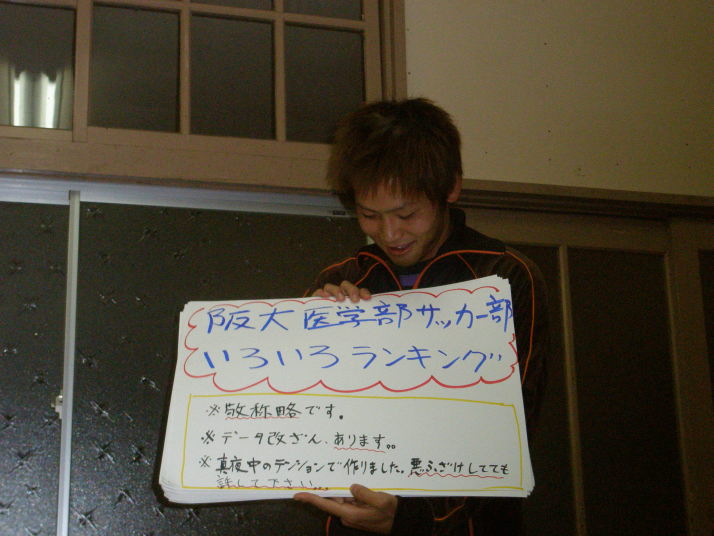 阪大医学部サッカー部
いろいろランキング
※敬称略です。
※データ改ざん、あります。。
※真夜中のテンションで作りました。悪ふざけしてても
許して下さい...